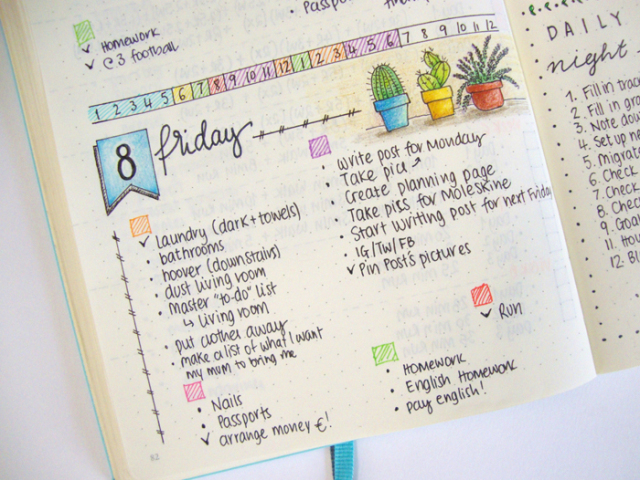 Homework
✓ C3 football
Passpor
1 2 3 4 5 6 7 8 9 10 11 12 1 2 3 4 5 6 7 8 9 10 11 12
8 friday
✓ Laundry (dark + towels)
• bathrooms
• hoover (downstairs)
• dust living room
• master "to-do" list
↳ living room
• put clother away
• make a list of what I want
my mum to bring me
• Nails
• Passports
✓ arrange money €!
• Write post for Monday
• Take pics ↗
• Create planning page
• Take pics for Moleskine
• Start writing post for next Friday
• IG/TW/FB
✓ Pin Post's pictures
✓ Run
• Homework
• English Homework
• pay english!
82
DAILY
night
1. Fill in trac
2. Fill in gr
3. Note dow
4. Set up m
5. Migrat
6. Check
7. Check
8. Chec
9. Goa
10. Ho
11. Ho
12. Bl